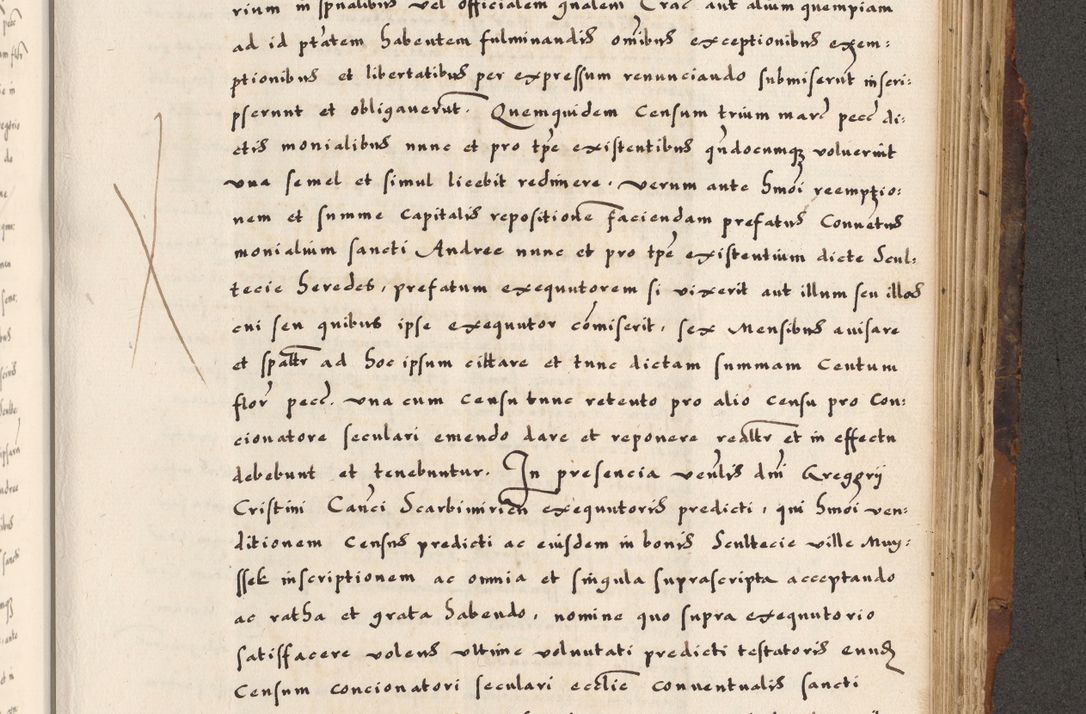 rium in spualibus vel officialem gnalem Crac aut alium quempiam
ad id ptatem habentem fulminandis omibus exceptionibus exem:
ptionibus et libertatibus per expressum renunciando submiserut inscri:
pserunt et obligaverut. Quemquidem Censum trium marc pecc di:
ctis monialibus nunc et pro tpe existentibus qndocumqz voluerint
vna semel et simul licebit redimere. verum ante hmoi reemptio:
nem et summe Capitalis repositione faciendam prefatus Conuetus
monialium sancti Andree nunc et pro tpe existentium dicte Scul:
tecie heredes, prefatum exequutorem si vixerit aut illum seu illos
cui seu quibus ipse exequutor comiserit, sex Mensibus auisare
et spaltr ad hoc ipsum cittare et tunc dictam summam Centum
flor pecc. vna cum censu tunc retento pro alio censu pro Con:
cionatore seculari emendo dare et reponere realtr et in effectu
debebunt et tenebuntur. In presencia venlis dni Gregorij
Cristini Canci Scarbimirien exequutoris predicti, qui hmoi ven:
ditionem Census predicti ac eiusdem in bonis Scultecie ville Muy:
ssek inscriptionem ac omnia et singula suprascripta acceptando
ac ratha et grata habendo, nomine quo supra exequutorio
satisfacere volens vltime voluntati predicti testatoris eund
Censum concionatori seculari ecclie conuentualis sancti